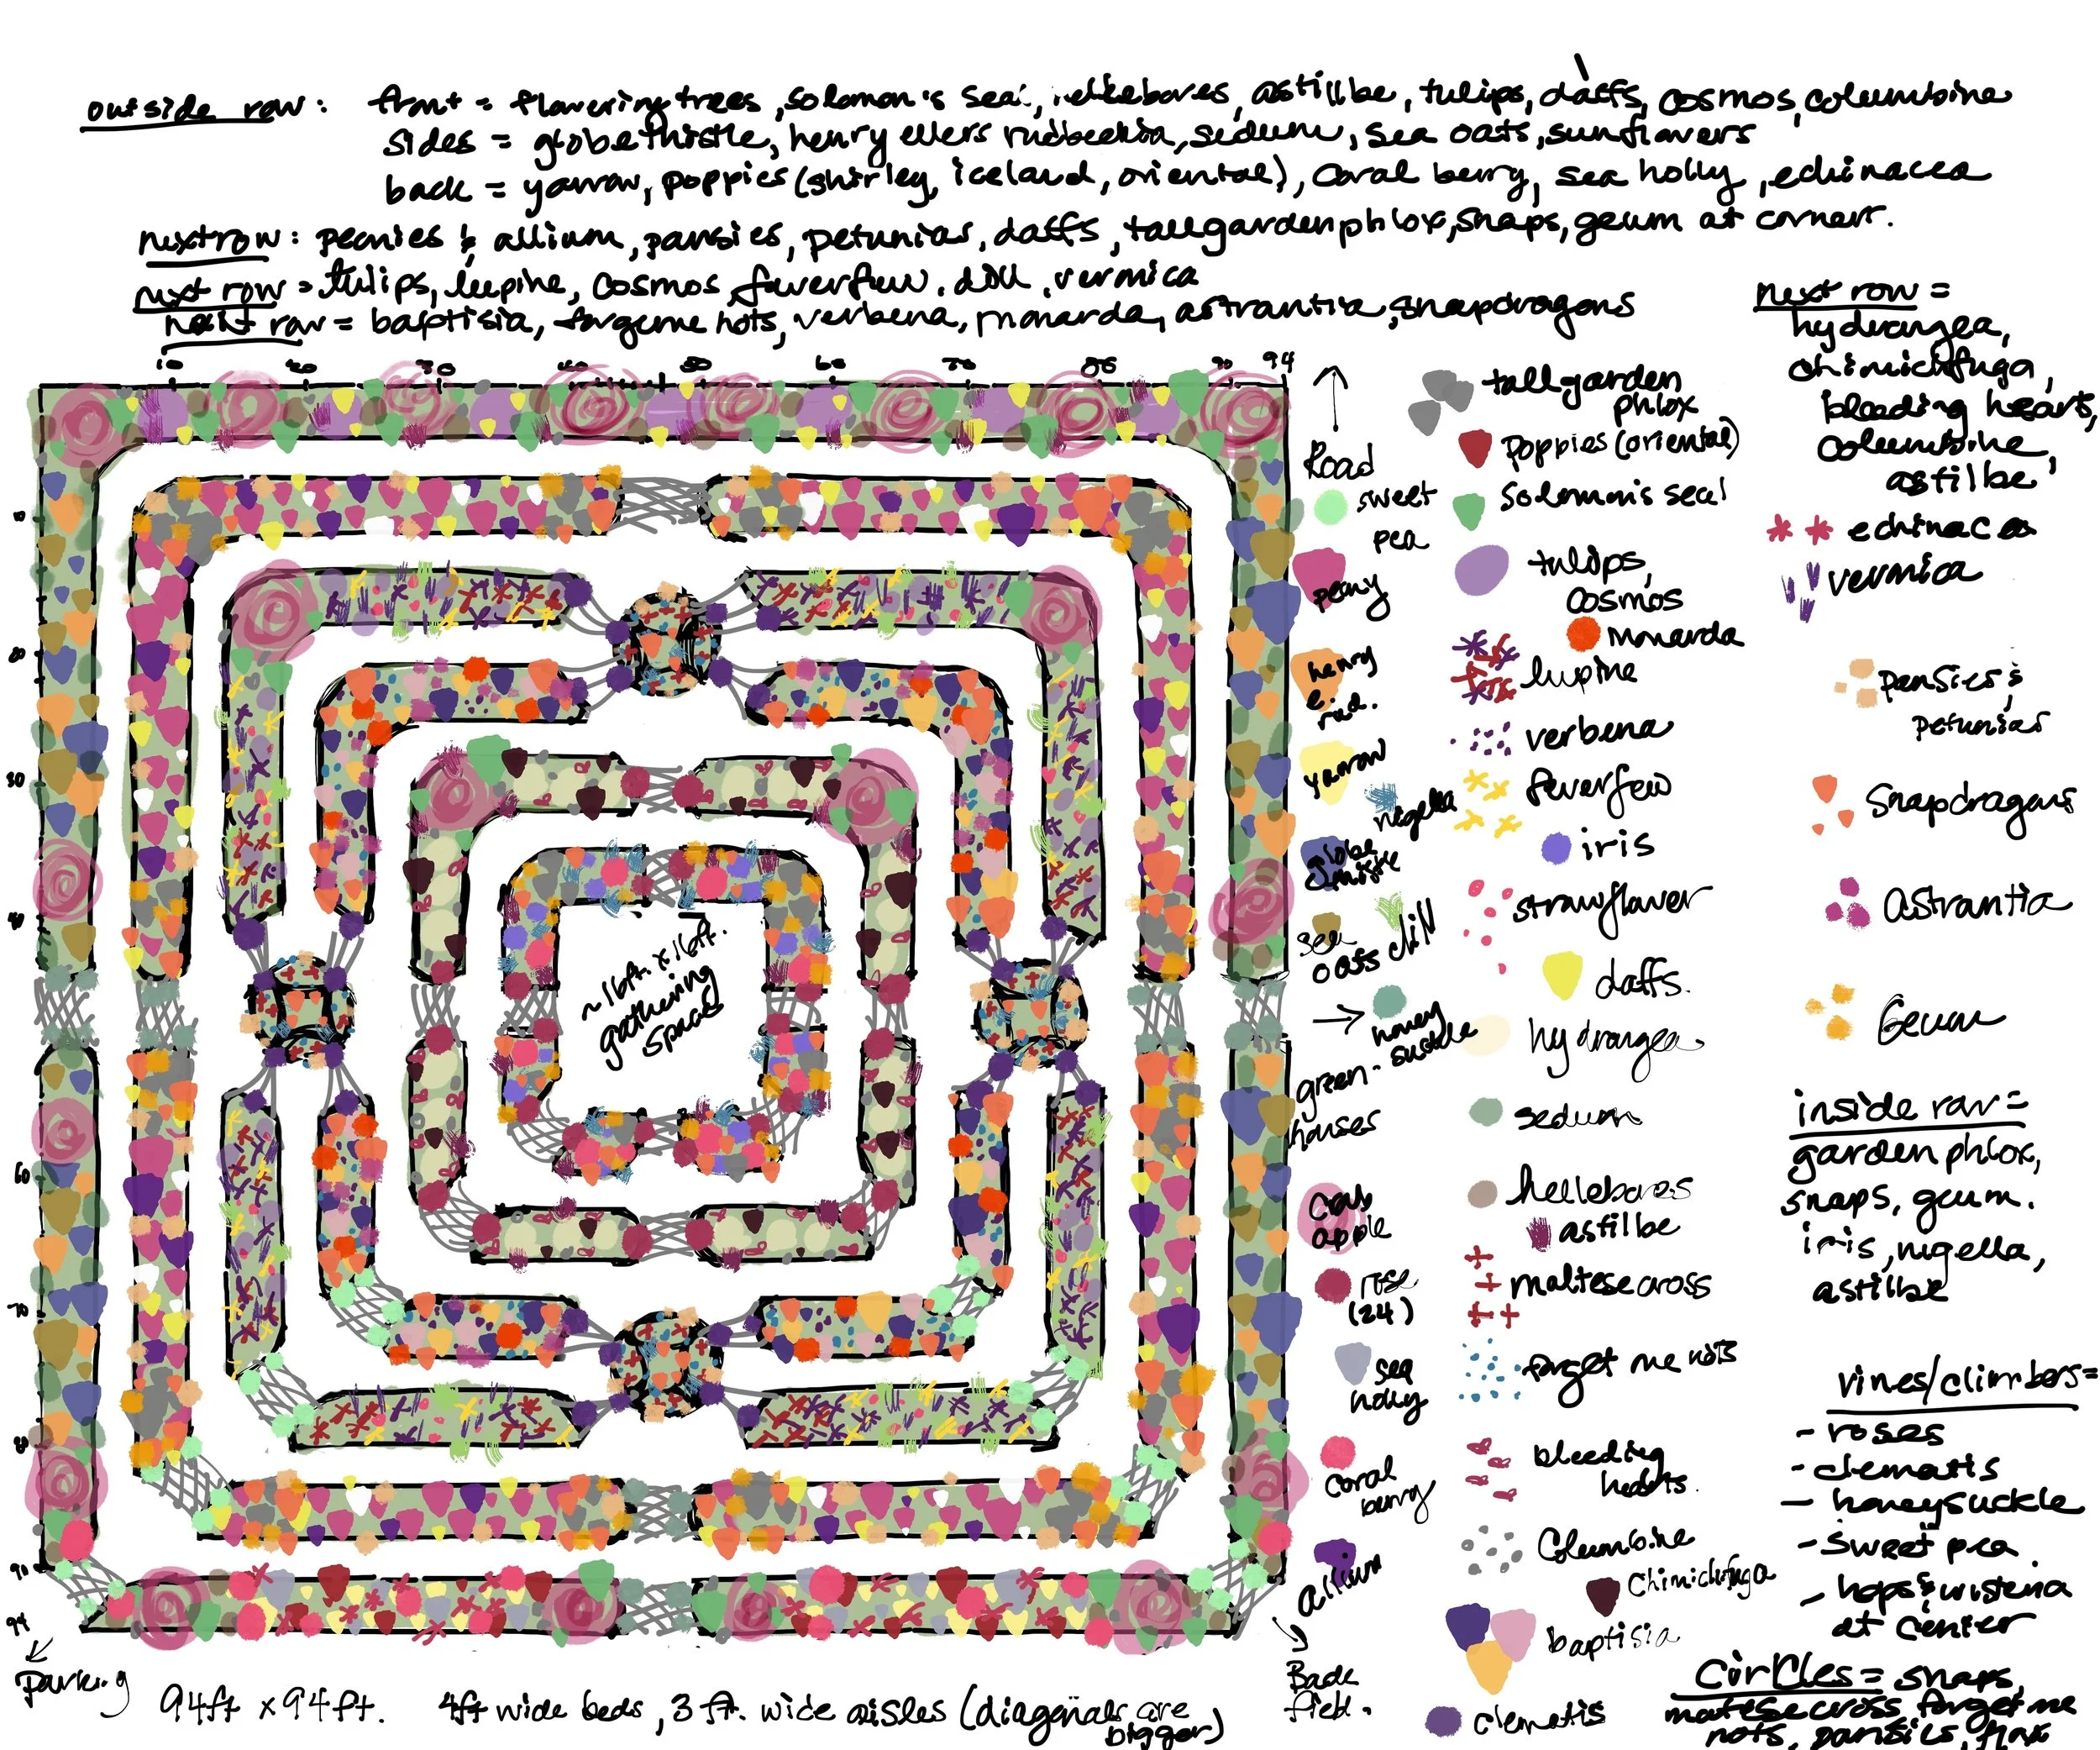 outside row: front = flowering trees, solomon's seal, hellebores, astillbe, tulips, daffs, cosmos, columbine
sides = globethistle, henry ellers rudbeckia, sedum, sea oats, sunflowers
back = yarrow, poppies (shirley, iceland, oriental), coral berry, sea holly, echinacea
next row: peonies & allium, pansies, petunias, daffs, tall garden phlox, snaps, geum at corners.
next row = tulips, lupine, cosmos, feverfew, dill, vermica
next row = baptisia, forgetmenots, verbena, monarda, astrantia, snapdragons
next row =
hydrangea,
chimichifuga,
bleeding heart,
columbine,
astilbe
10 20 30 40 50 60 70 80 90 94
10
20
30
40
60
70
80
90
94
Road
sweet
pea
peony
henry
e.
rud.
yarrow
nigella
globe
thistle
sea
oats
dill
→ honey
suckle
green-
houses
crab
apple
rose
(24)
sea
holly
coral
berry
allium
Back
field.
tall garden
phlox
poppies (oriental)
solomon's seal
tulips,
cosmos
monarda
lupine
verbena
feverfew
iris
strawflower
daffs.
hydrangea
sedum
hellebores
astilbe
maltese cross
forget me nots
bleeding
hearts.
Columbine
Chimichifuga
baptisia
clematis
echinacea
vermica
pansies &
petunias
Snapdragons
Astrantia
Geum
inside row =
garden phlox,
snaps, geum.
iris, nigella,
astilbe
vines/climbers =
- roses
- clematis
- honeysuckle
- sweet pea
- hops & wisteria
at center
Circles = snaps,
maltese cross, forget me
nots, pansies, flax
~16ft. x 16ft.
gathering
space
Parking
94ft x 94ft. 4ft wide beds, 3 ft. wide aisles (diagonals are
bigger)